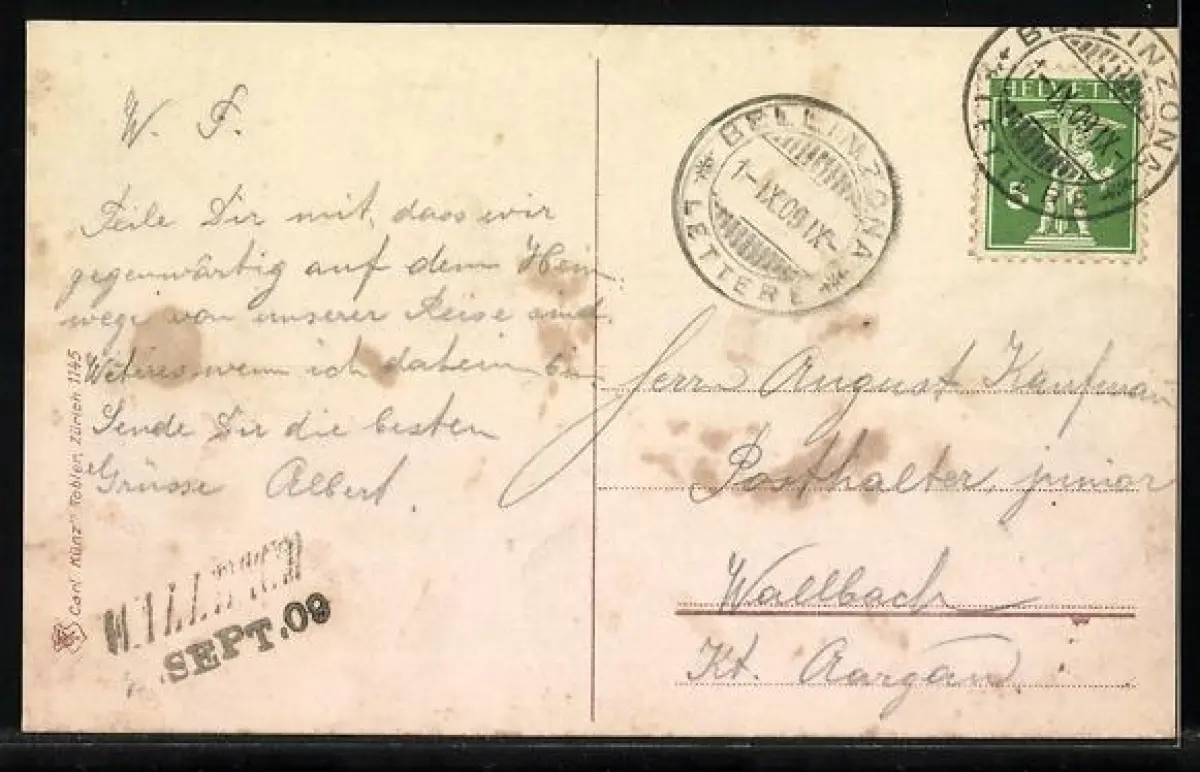 W. F.
Teile Dir mit, dass wir
gegenwärtig auf dem Heim
wege von unserer Reise sind.
wenn ich daheim bin
Sende Dir die besten
Grüsse Albert.
Carl Künzli Tobler, Zürich 1745
WALLBACH
SEPT. 09
BELLINZONA
1-IX.09.IX-
LETTERE
HELVETIA
5
BELLINZONA
1-IX.09.IX-
LETTERE
Herrn August Kaufman
Posthalter, junior
Wallbach
Kt. Aargau